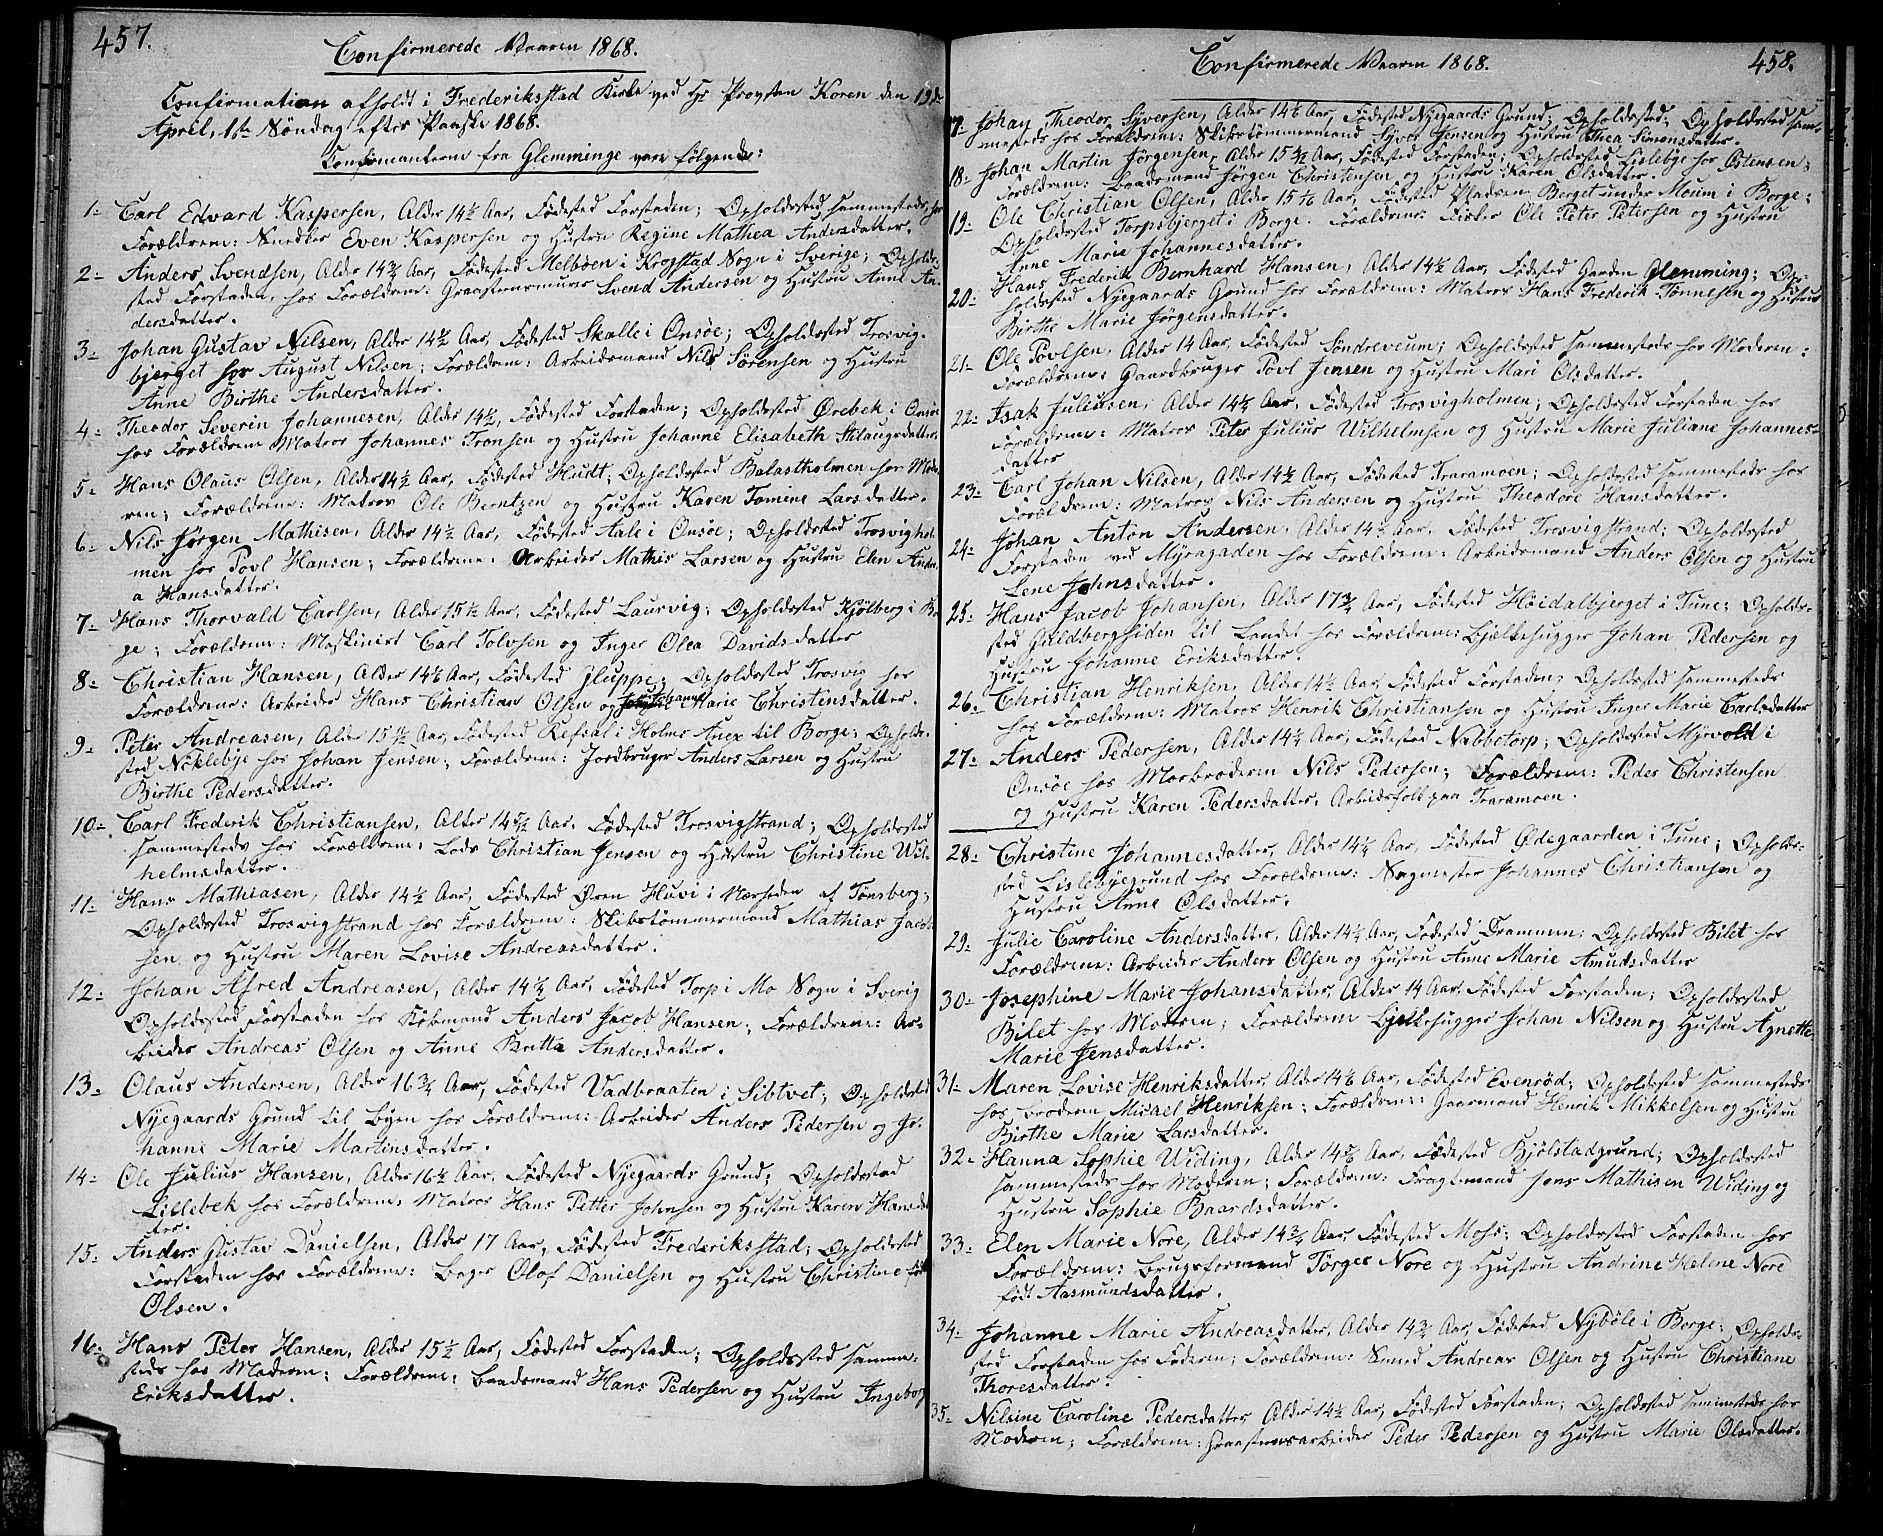 457.
Confirmerede Vaaren 1868.
Confirmation afholdt i Frederiksstad Kirke ved Hr Provsten Koren den 19de
April, 1ste Søndag efter Paaske 1868.
Confirmanterne fra Glemminge vare følgende:
1- Carl Edvard Kaspersen, Alder 14½ Aar, Fødested Forstaden; Opholdssted sammesteds, hos
Forældrene: Snedker Even Kaspersen og Hustru Regine Mathea Andersdatter.
2- Anders Svendsen, Alder 14¾ Aar, Fødested Melbøen i Krogstad Sogn i Sverige; Opholds-
sted Forstaden, hos Forældrene: Graastensmurer Svend Andersen og Hustru Anne An-
dersdatter.
3- Johan Gustav Nilsen, Alder 14 Aar, Fødested Skalle i Onsøe; Opholdssted Trosvig-
bjerget hos August Nilsen; Forældrene: Arbeidsmand Nils Sørensen og Hustru
Anne Birthe Andersdatter.
4- Theodor Severin Johannesen, Alder 14½, Fødested Forstaden; Opholdssted Ørebek i Onsøe
hos Forældrene Matros Johannes Tronsen og Hustru Johanne Elisabeth Aslaugsdatter.
5- Hans Olaus Olsen, Alder 14½ Aar, Fødested Hudt; Opholdssted Balastholmen hos Mode-
ren; Forældrene: Matros Ole Berntzen og Hustru Karen Tomine Larsdatter.
6- Nils Jørgen Mathisen, Alder 14½ Aar, Fødested Aale i Onsøe; Opholdssted Trosvighol-
men hos Povl Hansen; Forældrene: Arbeider Mathis Larsen og Hustru Elen Andre-
a Hansdatter.
7- Hans Thorvald Carlsen, Alder 15½ Aar, Fødested Laurvig; Opholdssted Kjølberg i Bor-
ge; Forældrene: Maskinist Carl Tolvsen og Inger Olea Davidsdatter
8- Christian Hansen, Alder 14 Aar, Fødested Gluppe; Opholdssted Trosvig hos
Forældrene: Arbeider Hans Christian Olsen og Hustru Johanne Marie Christensdatter.
9- Peter Andreasen, Alder 15 Aar, Fødested Refsal i Holms Anex til Borge; Opholds-
sted Nøklebye hos Johan Jensen; Forældrene: Jordbruger Anders Larsen og Hustru
Birthe Pedersdatter.
10- Carl Frederik Christiansen, Alder 14 Aar, Fødested Trosvigstrand; Opholdssted
sammesteds hos Forældrene: Lods Christian Jensen og Hustru Christine Wil-
helmsdatter.
11- Hans Mathiasen, Alder 14½ Aar, Fødested Øren Huvi i Nærheden af Tønsberg;
Opholdssted Trosvigstrand hos Forældrene: Skibstømmermand Mathias Jacob-
sen og Hustru Maren Lovise Andreasdatter.
12- Johan Alfred Andreasen, Alder 14½ Aar, Fødested Torp i Mo Sogn i Sverig
Opholdssted Forstaden hos Kjøbmand Anders Jacob Hansen; Forældrene: Ar-
beider Andreas Olsen og Anne Britta Andersdatter.
13- Olaus Andersen, Alder 16¾ Aar, Fødested Vadbraaten i Sibtvet; Opholdssted
Nyegaards Grund til Byen hos Forældrene: Arbeider Anders Pedersen og Jo-
hanne Marie Martinsdatter.
14- Ole Julius Hansen, Alder 16½ Aar, Fødested Nyegaards Grund; Opholdssted
Lillebek hos Forældrene, Matros Hans Petter Johnsen og Hustru Karen Hansdat-
ter.
15- Anders Gustav Danielsen, Alder 17 Aar, Fødested Frederiksstad; Opholdssted
Forstaden hos Forældrene: Bager Olof Danielsen og Hustru Christine født
Olsen.
16- Hans Peter Hansen, Alder 15½ Aar, Fødested Forstaden; Opholdssted samme-
steds hos Moderen; Forældrene: Baadsmand Hans Pedersen og Hustru Ingeborg
Eriksdatter.
458.
Confirmerede Vaaren 1868.
17- Johan Theodor Syversen, Alder 14 Aar, Fødested Nyegaards Grund; Opholdssted; Opholdssted sam-
mesteds hos Forældrene: Skibstømmermand Syver Jensen og Hustru Thea Simonsdatter.
18- Johan Martin Jørgensen, Alder 15 Aar, Fødested Forstaden; Opholdssted Lislebye hos Østensen;
Forældrene: Baadsmand Jørgen Christensen og Hustru Karen Olsdatter.
19- Ole Christian Olsen, Alder 15 Aar, Fødested Pladsen Berget under Moum i Borge;
Opholdssted Torpsbjerget i Borge. Forældrene: Fisker Ole Peter Petersen og Hustru
Anne Marie Johannesdatter.
20- Hans Frederik Bernhard Hansen, Alder 14½ Aar, Fødested Gaarden Glemming; Op-
holdssted Nyegaards Grund hos Forældrene: Matros Hans Frederik Tønnesen og Hustru
Birthe Marie Jørgensdatter.
21- Ole Povlsen, Alder 14 Aar, Fødested Søndreveum; Opholdssted sammesteds hos Moderen:
Forældrene: Gaardbruger Povl Jensen og Hustru Mari Olsdatter.
22- Isak Juliussen, Alder 14½ Aar, Fødested Trosvigholmen; Opholdssted Forstaden hos
Forældrene: Matros Peter Julius Wilhelmsen og Hustru Marie Juliane Johannes-
datter
23- Carl Johan Nilsen, Alder 14½ Aar, Fødested Traramoen; Opholdssted sammesteds hos
Forældrene: Matros Nils Andersen og Hustru Theodore Hansdatter.
24- Johan Anton Andersen, Alder 14½ Aar, Fødested Trosvigstrand; Opholdssted
Forstaden ved Myragaden hos Forældrene: Arbeidsmand Anders Olsen og Hustru
Lene Johnsdatter.
25- Hans Jacob Johansen, Alder 17¾ Aar, Fødested Høidalbjerget i Tune; Opholds-
sted Guldbergsiden til Landet hos Forældrene: Bjelkehugger Johan Pedersen og
Hustru Johanne Eriksdatter.
26- Christian Henriksen, Alder 14½ Aar, Fødested Forstaden; Opholdssted sammesteds
hos Forældrene: Matros Henrik Christiansen og Hustru Inger Marie Carlsdatter
27- Anders Pedersen, Alder 14½ Aar, Fødested Nabbetorp; Opholdssted Myrvold i
Onsøe hos Morbroderen Nils Pedersen; Forældrene: Peder Christensen
og Hustru Karen Pedersdatter, Arbeidsfolk paa Traramoen.
28- Christine Johannesdatter, Alder 14¼ Aar, Fødested Ødegaarden i Tune; Opholds-
sted Lislebyegrund hos Forældrene: Sagmester Johannes Christiansen og
Hustru Anne Olsdatter.
29- Julie Caroline Andersdatter, Alder 14½ Aar, Fødested Drammen; Opholdssted Bilet hos
Forældrene: Arbeider Anders Olsen og Hustru Anne Marie Amundsdatter
30- Josephine Marie Johansdatter, Alder 14 Aar, Fødested Forstaden; Opholdssted
Bilet hos Moderen; Forældrene Bjelkehugger Johan Nilsen og Hustru Agnette
Marie Jensdatter.
31- Maren Lovise Henriksdatter, Alder 14 Aar, Fødested Evenrød; Opholdssted sammesteds
hos Broderen Micael Henriksen; Forældrene: Gaarmand Henrik Mikkelsen og Hustru
Birthe Marie Larsdatter.
32- Hanna Sophie Widing, Alder 14 Aar, Fødested Kjølstadgrund; Opholdssted
sammesteds hos Moderen; Forældrene: Fragtemand Jens Mathisen Widing og
Hustru Sophie Baardsdatter.
33- Elen Marie Nore, Alder 14¾ Aar, Fødested Mohs; Opholdssted Forstaden hos
Forældrene: Brugsformand Tørger Nore og Hustru Andrine Helene Nore
født Aasmundsdatter.
34- Johanne Marie Andreasdatter, Alder 14¾ Aar, Fødested Nybøle i Borge; Opholds-
sted Forstaden hos Faderen; Forældrene: Smed Andreas Olsen og Hustru Christiane
Thoresdatter.
35- Nilsine Caroline Pedersdatter, Alder 14½ Aar, Fødested Forstaden; Opholdssted sammesteds hos
Moderen; Forældrene: Graastensarbeider Peder Pedersen og Hustru Marie Olsdatter.